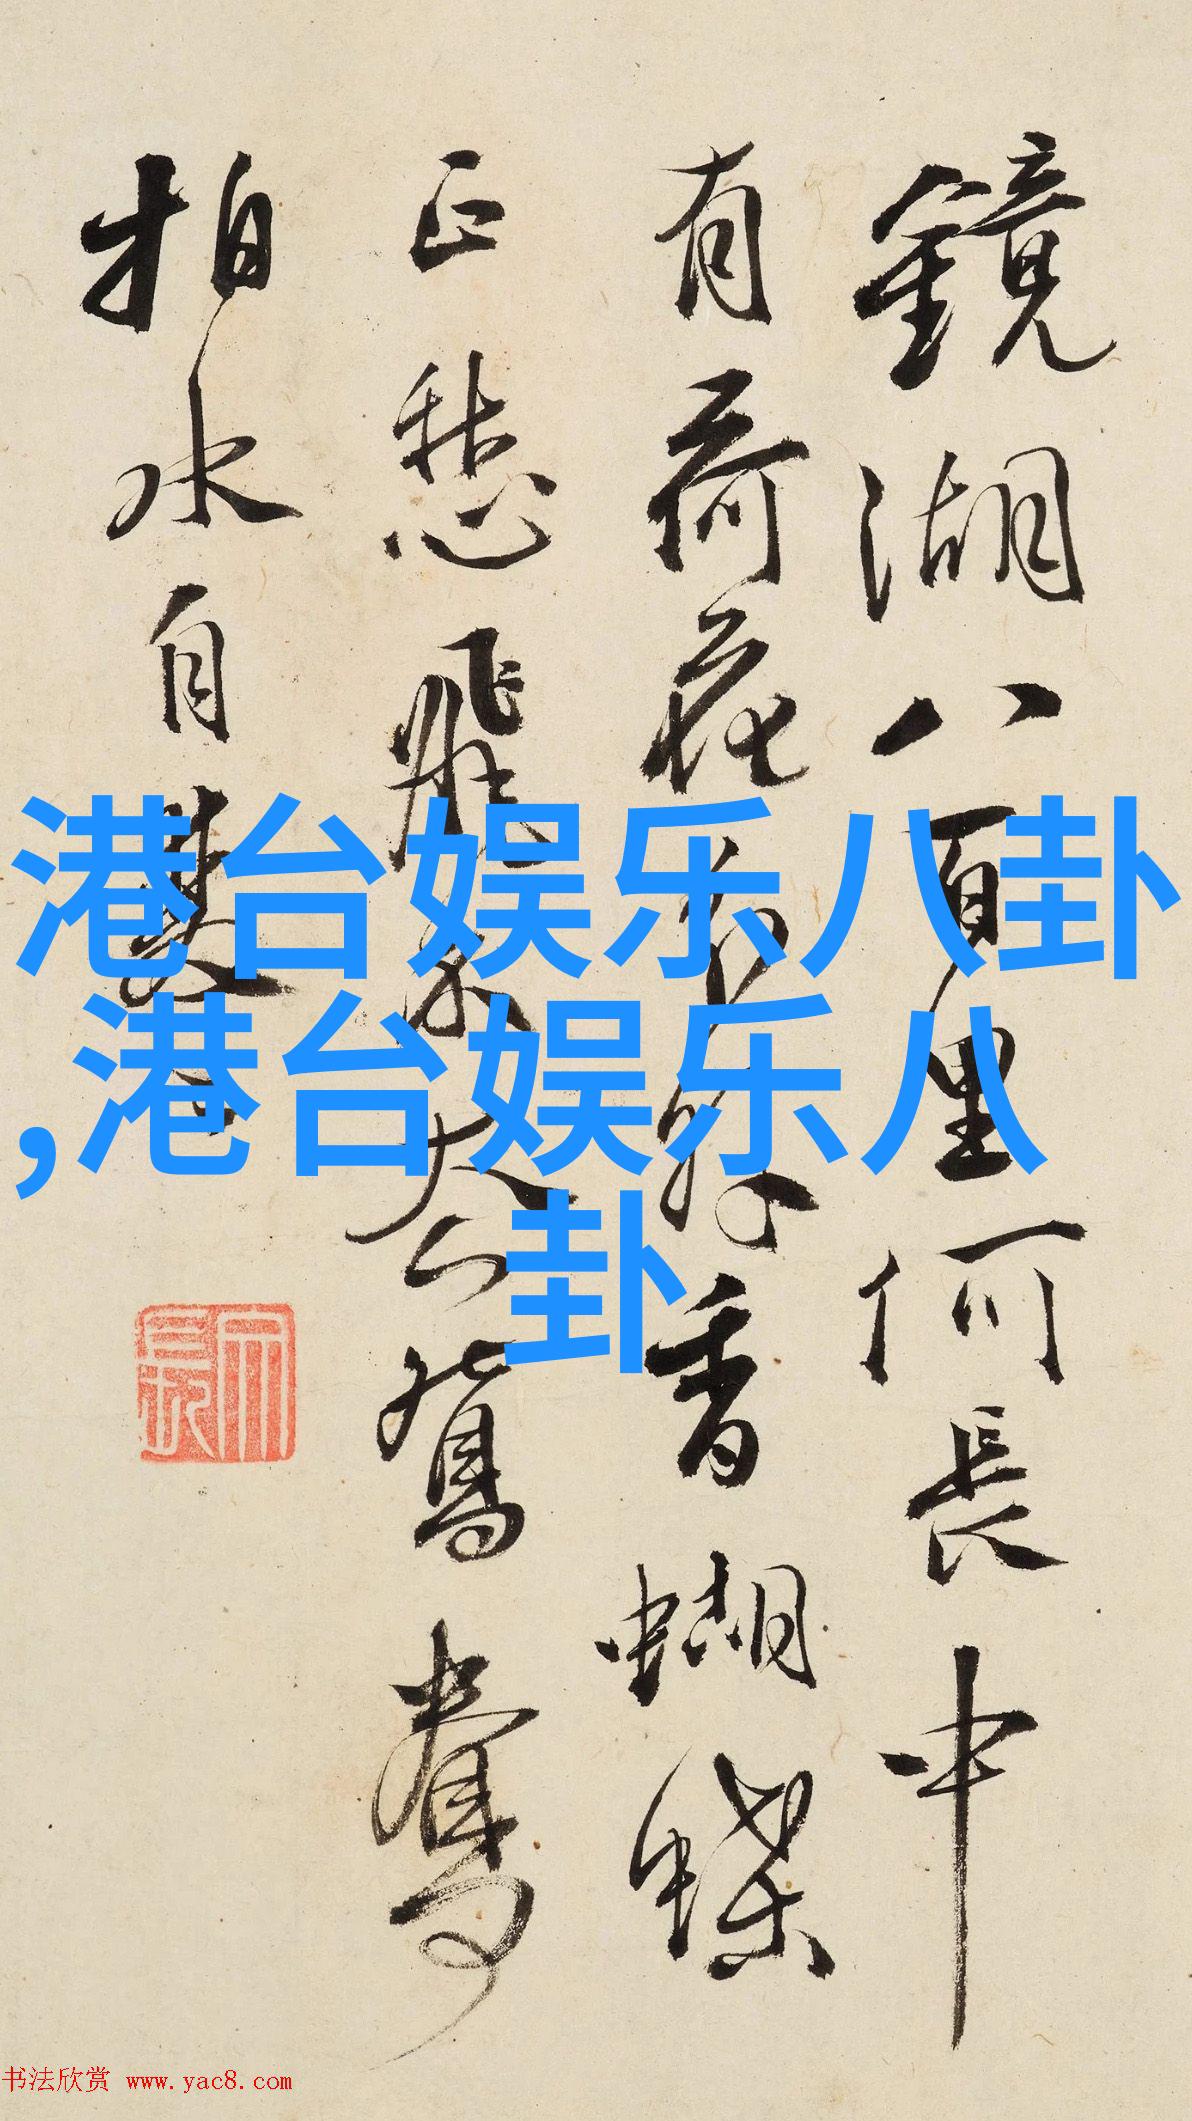 鏡湖八百里何長中
有荷花分外香蝴蝶
正愁飛不去鴛鴦
拍水自雙
港台娱乐八卦
,港台娱乐八
卦
书法欣赏 www.yac8.com